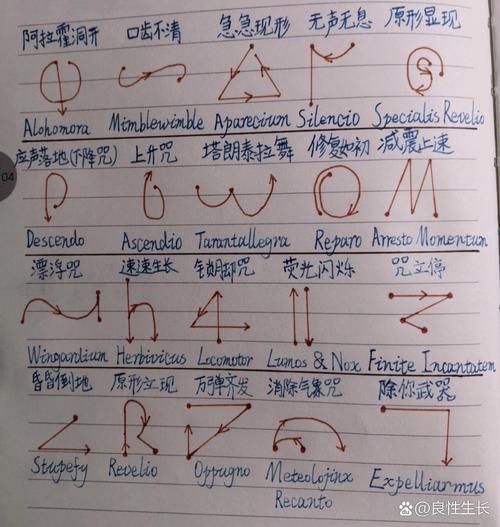 阿拉霍洞开 口齿不清 急急现形 无声无息 原形显现
Alohomora Mimblewimble Aparecium Silencio Specialis Revelio
应声落地(下降咒) 上升咒 塔朗泰拉舞 修复如初 减震止速
04
Descendo Ascendio Tarantallegra Reparo Arresto Momentum
漂浮咒 速速生长 锁腿咒 荧光闪烁 咒立停
Wingardium Herbivicus Locomotor Lumos & Nox Finite Incantatem
昏昏倒地 原形立现 万弹齐发 消除气象咒 除你武器
Stupefy Revelio Oppugno Meteolojinx Expelliarmus
Recanto
良性生长